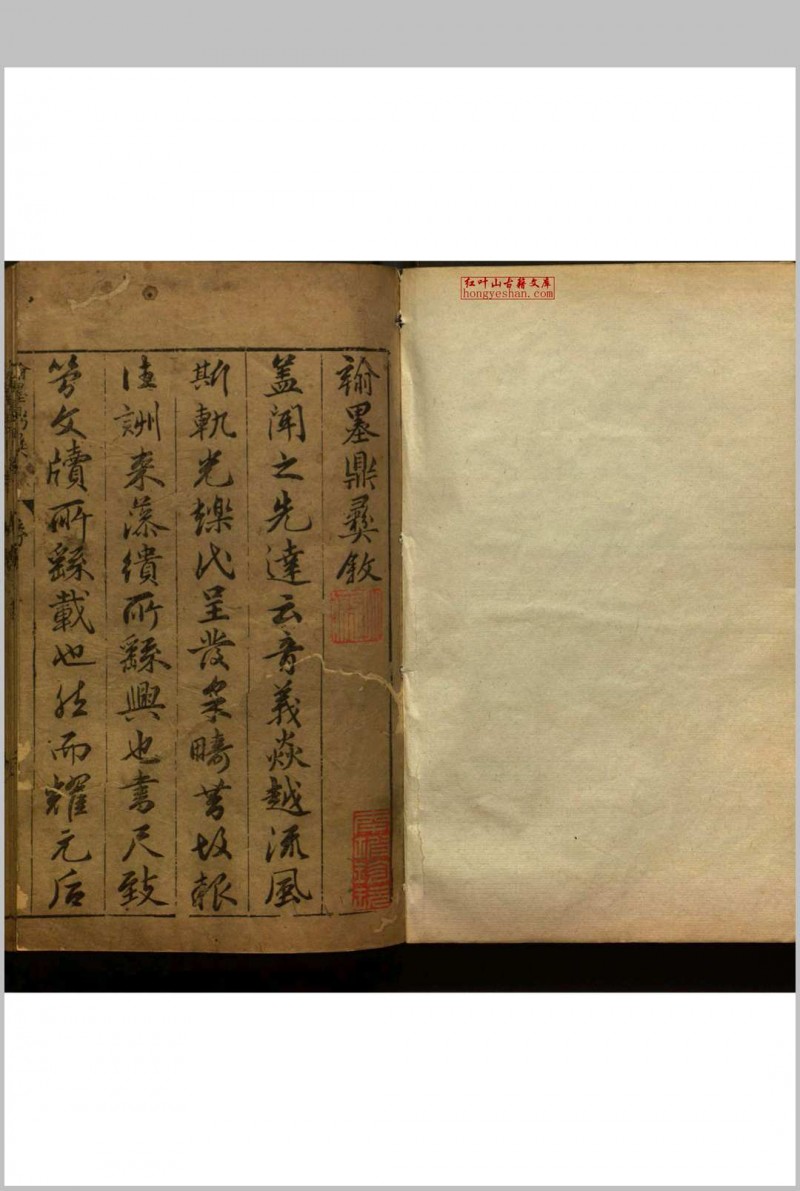 红叶山古籍文库
hongyeshan.com
翰墨鼎彝敘
葢聞之先達云音義焱越流風
斯軌光爍代呈發采疇昔故報
往詶來藻繢所繇興也書尺致
勞文牘所繇載也然而耀元后